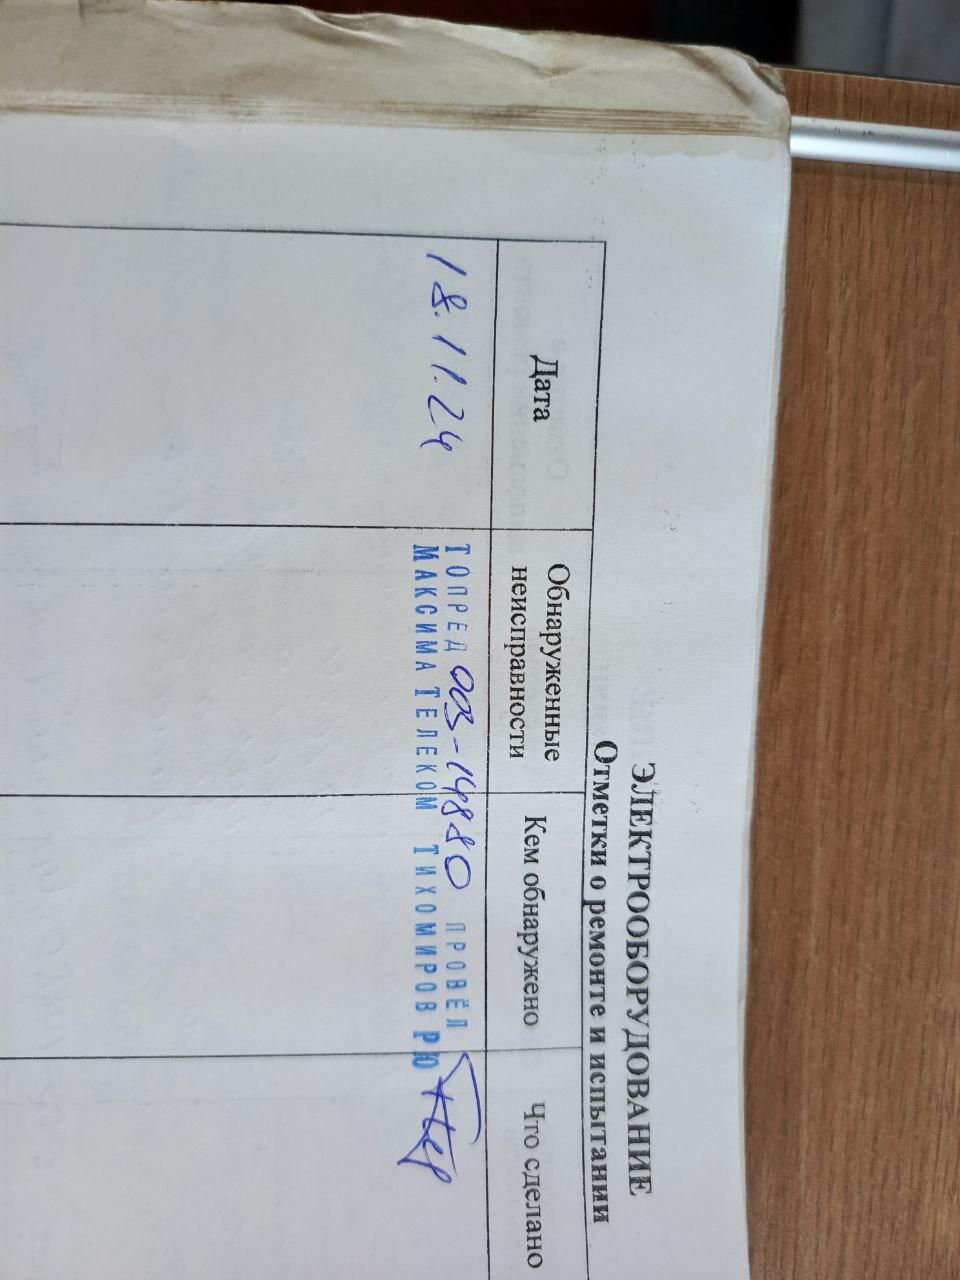 ЭЛЕКТРООБОРУДОВАНИЕ
Отметки о ремонте и испытании
Дата
Обнаруженные
неисправности
Кем обнаружено
Что сделано
18.11.24
ТО ПРЕД 003-14880 ПРОВЁЛ
МАКСИМА ТЕЛЕКОМ ТИХОМИРОВ РЮ